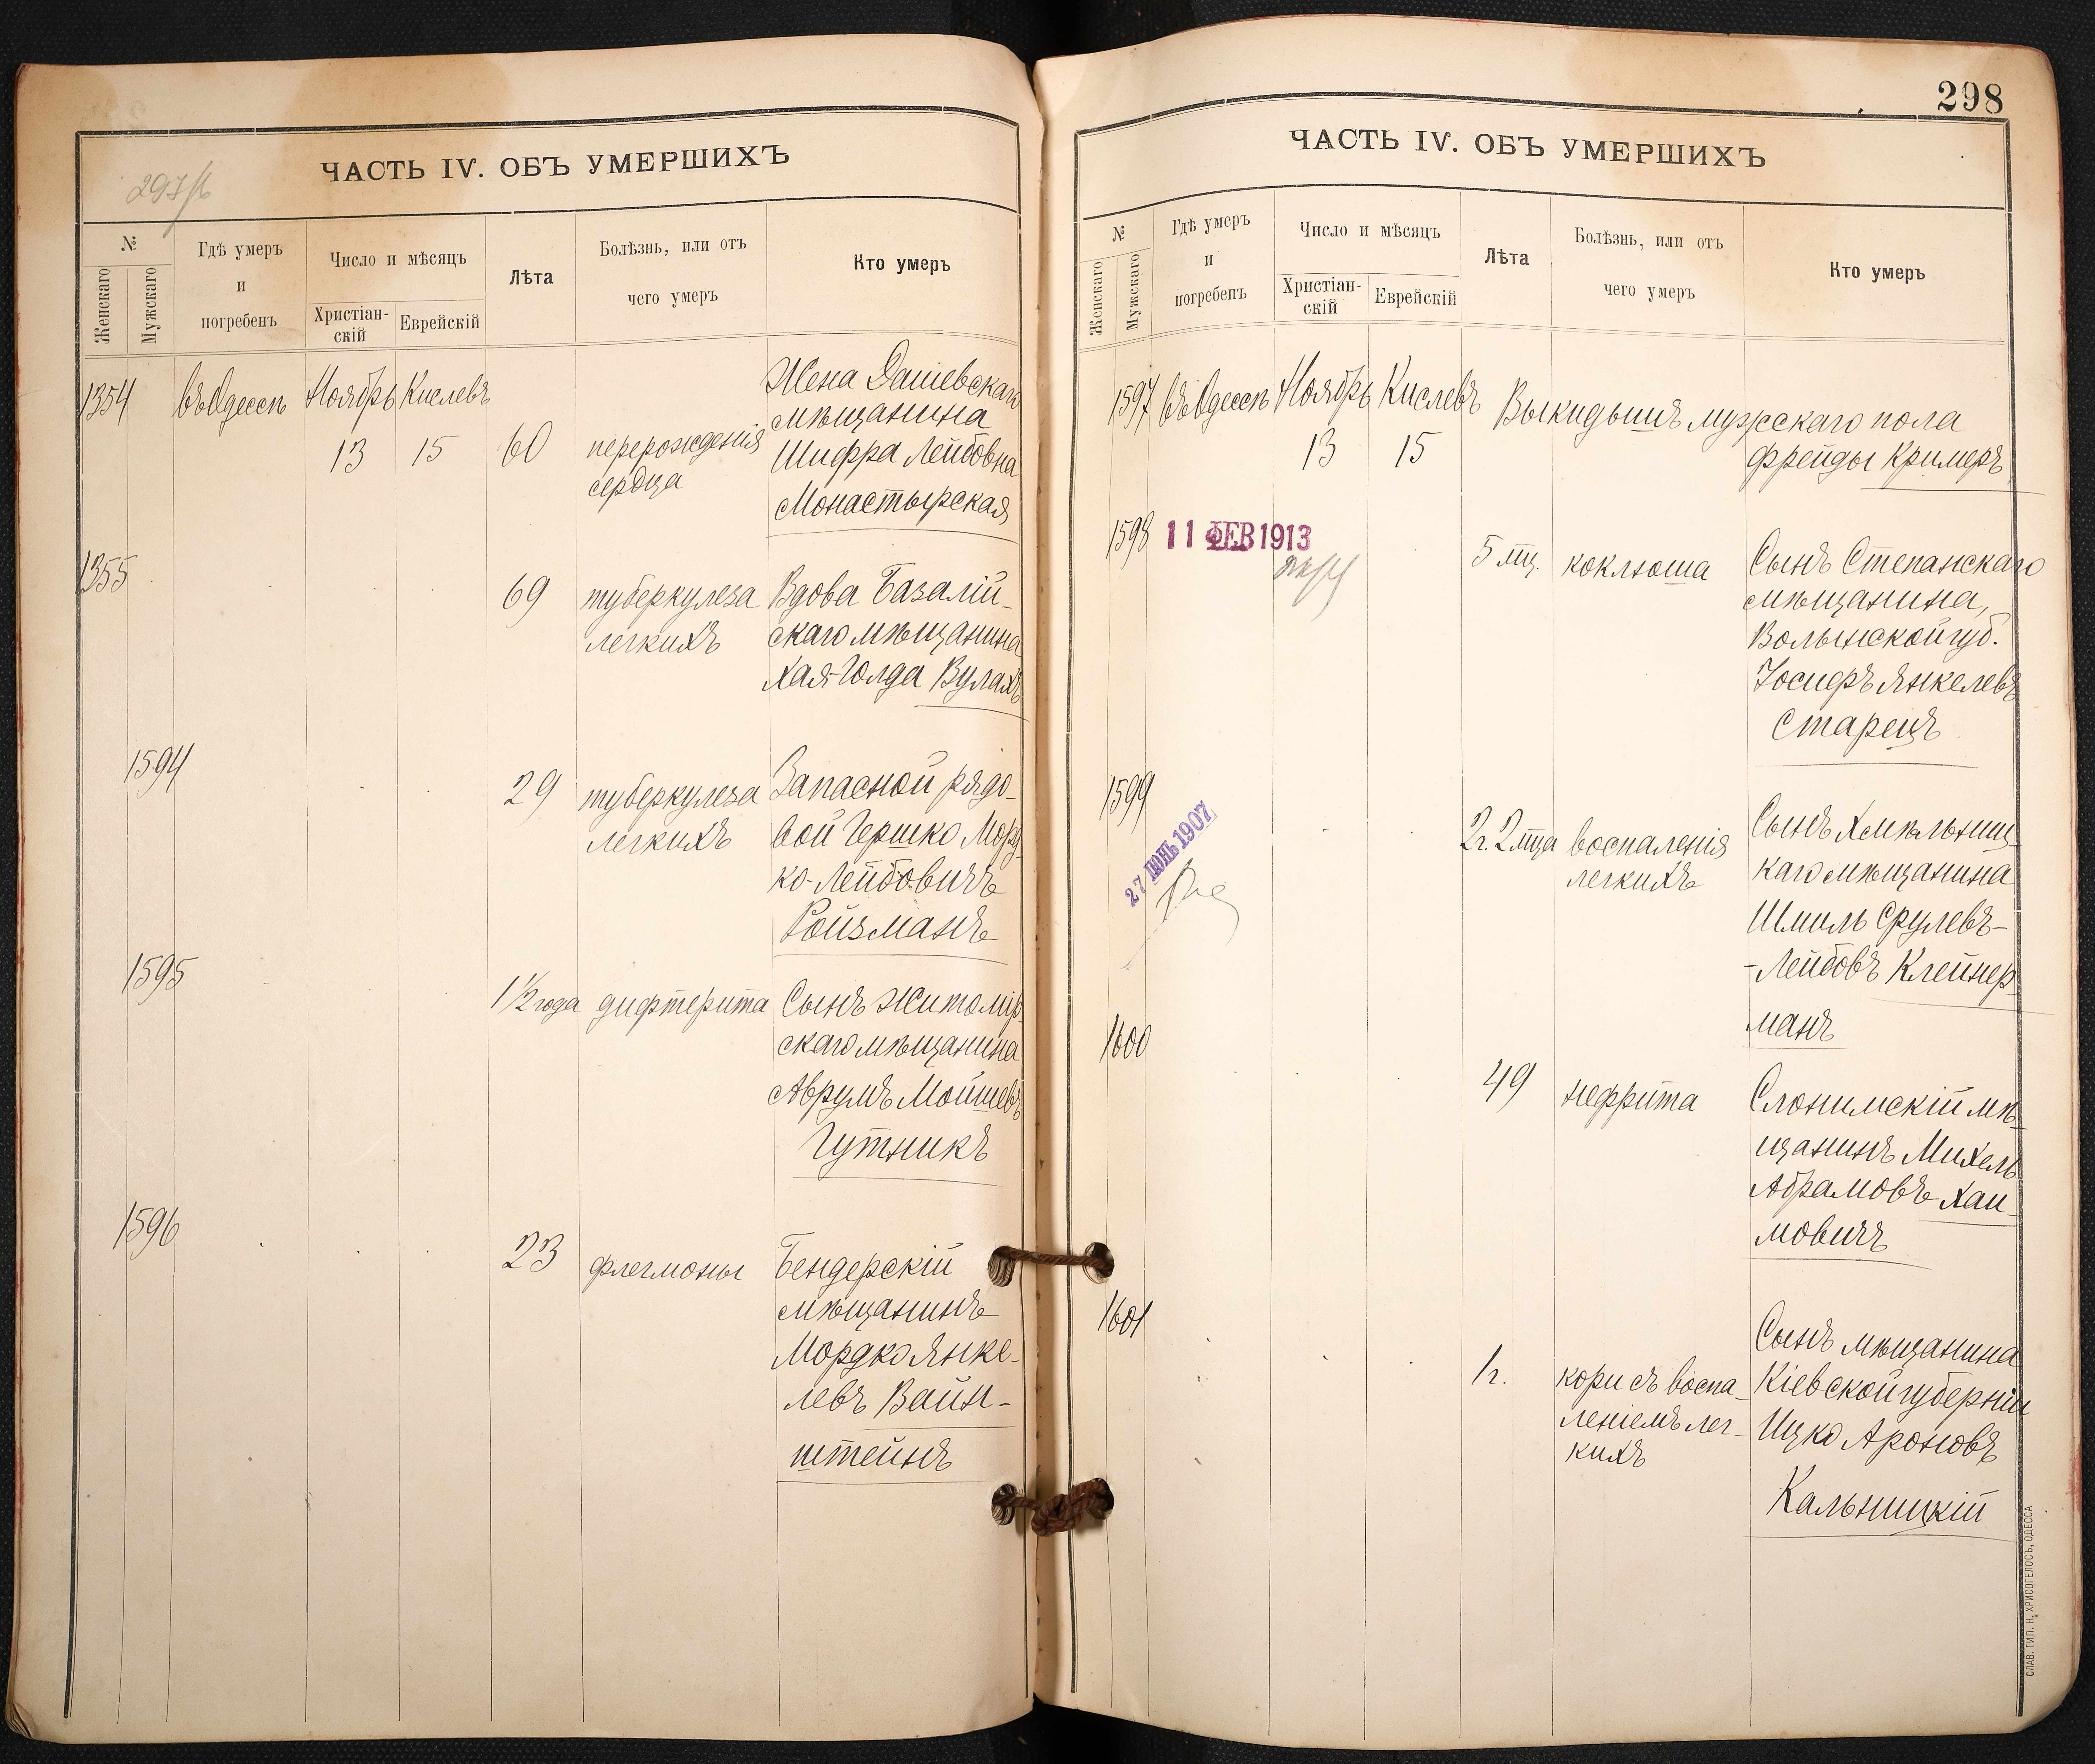 297/б
ЧАСТЬ IV. ОБЪ УМЕРШИХЪ
№
Женскаго
Мужскаго
Гдѣ умеръ
и
погребенъ
Число и мѣсяцъ
Христіан-
скій
Еврейскій
Лѣта
Болѣзнь, или отъ
чего умеръ
Кто умеръ
1354
въ Одессѣ
Ноябрь
13
Кислевъ
15
60
перерожденія
сердца
Жена Дашевскаго
мѣщанина
Шифра Лейбовна
Монастырская
1355
69
туберкулеза
легкихъ
Вдова Базалій-
скаго мѣщанина
Хая-Голда Вулахъ
1594
29
туберкулеза
легкихъ
Запасной рядо-
вой Гершко
ко-Лейбовичъ
Ройзманъ
1595
1 1/2 года
дифтерита
Сынъ Житомір-
скаго мѣщанина
Аврумъ Мойшевъ
Гутникъ
1596
23
флегмоны
Бендерскій
мѣщанинъ
Мордко Янке-
левъ Вайн-
штейнъ
298
ЧАСТЬ IV. ОБЪ УМЕРШИХЪ
№
Женскаго
Мужскаго
Гдѣ умеръ
и
погребенъ
Число и мѣсяцъ
Христіан-
скій
Еврейскій
Лѣта
Болѣзнь, или отъ
чего умеръ
Кто умеръ
1597
въ Одессѣ
Ноябрь
13
Кислевъ
15
Выкидышъ мужскаго пола
Фрейды Кримеръ
1598
11 ФЕВ 1913
5 мц.
коклюша
Сынъ Степанскаго
мѣщанина,
Волынской губ.
Іосифъ Янкелевъ
Старецъ
1599
27 ІЮНЬ 1907
2г. 2 мца
воспаленія
легкихъ
Сынъ Хмѣльниц-
каго мѣщанина
Шмиль Срулевъ-
-Лейбовъ Клейнер-
манъ
1600
49
нефрита
Слонимскій мѣ-
щанинъ Михель
Абрамовъ Хаи-
мовичъ
1601
1г.
кори съ воспа-
леніемъ лег-
кихъ
Сынъ мѣщанина
Кіевской губерніи
Ицко Ароновъ
Кальницкій
СЛАВ. ТИП. Н. ХРИСОГЕЛОСЪ, ОДЕССА